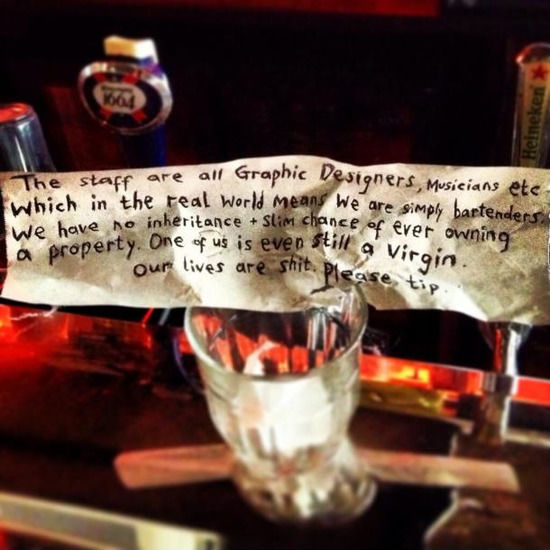 Kronenbourg
1664
Heineken
The staff are all Graphic Designers, Musicians etc
Which in the real World means We are simply bartenders.
We have no inheritance + slim chance of ever owning
a property. One of us is even still a Virgin.
Our lives are shit. Please tip.